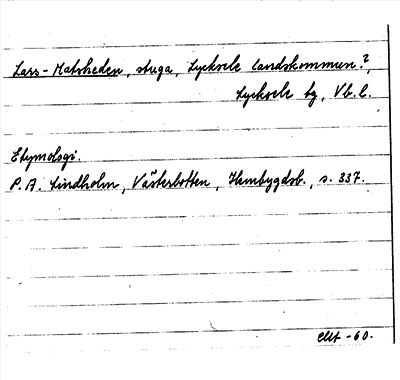 Lars-Matsheden, stuga, Lycksele landskommun?,
Lycksele tg, Vb.l.
Etymologi.
P.A. Lindholm, Västerbotten, Hembygdsb., s. 337.
-60.